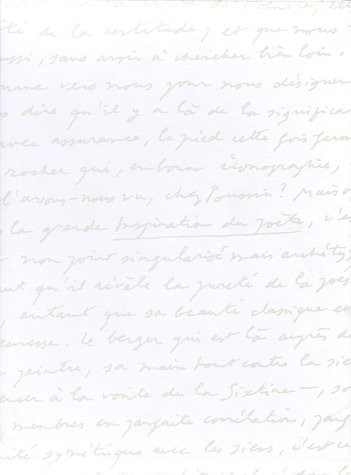 té de la certitude ; et que nous
ussi, sans avoir à chercher bien loin.
mme vers nous pour nous désigner
s dire qu'il y a là de la significa
avec assurance, le pied cette fois ferm
rocher qui, en bonne iconographie,
l'avons-nous vu, chez Poussin ? Mais o
la grande Inspiration du poète, c'es
non point singularisé mais archéty
nt qu'il révèle la pureté de la poés
, autant que sa beauté classique en
euresse. Le berger qui est là auprès de
peintre, sa main tout contre la sie
nser à la voûte de la Sixtine –, so
membres en parfaite corrélation, parf
ité symétrique avec les siens, c'est ce